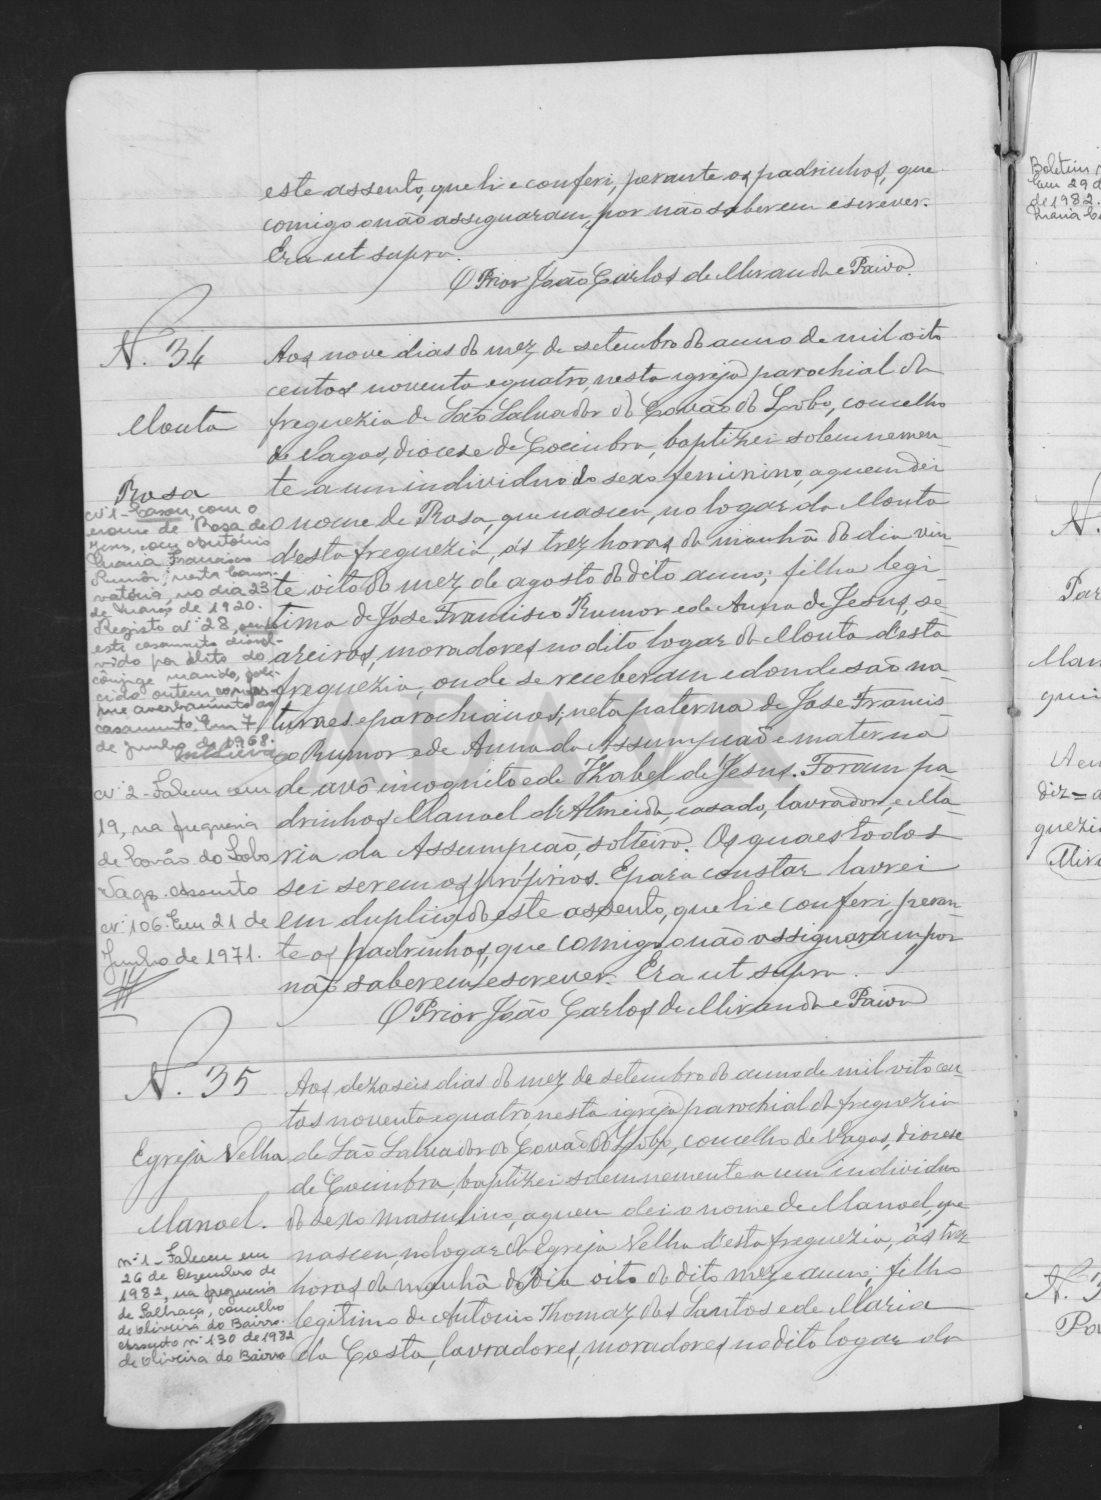 este assento, que li e conferi, perante os padrinhos, que
comigo o não assignaram, por não saberem escrever.
Era ut supra.
O Prior João Carlos de Miranda e Paiva
N. 34
Mouta
Rosa
Aos nove dias do mez de setembro do anno de mil oito
centos noventa e quatro, nesta igreja parochial da
freguezia de São Salvador do Covão do Lobo, concelho
de Vagos, diocese de Coimbra, baptizei solemnemen-
te a um individuo do sexo feminino, a quem dei
o nome de Rosa, que nasceu, no logar da Mouta
d'esta freguezia, ás trez horas da manhã do dia vin-
te oito do mez de agosto do dito anno; filha legi-
tima de Jose Francisco Rumor e de Anna de Jesus, se-
areiros, moradores no dito logar da Mouta d'esta
freguezia, onde se receberam e donde são na-
turaes e parochianos; neta paterna de Jose Francis-
co Rumor e de Anna da Assumpcaõ e materna
de avô incognito e de Izabel de Jesus. Foram pa-
drinhos Manoel d'Almeida, casado, lavrador, e Ma-
ria da Assumpcaõ, solteira. Os quaes todos
sei serem os próprios. E para constar lavrei
em duplicado este assento, que li e conferi, peran-
te os padrinhos, que comigo o não assignaram por
não saberem escrever. Era ut supra.
O Prior João Carlos de Miranda e Paiva
nº 1 - Casou, com o
nome de Rosa de
Jesus, com António
Maria Francisco
Rumôr, nesta Conser-
vatória, no dia 23
de Março de 1920.
Registo nº 28, sendo
este casamento dissol-
vido por óbito do
cônjuge marido, fale-
cido ontem
averbamento ao
casamento. Em 7
de Junho de 1968.
nº 2 - Faleceu em
19, na freguesia
de Covão do Lobo
Vagos. Assento
nº 106. Em 21 de
Junho de 1971.
N. 35
Egreja Velha
Manoel.
Aos dezaseis dias do mez de setembro do anno de mil oito cen-
tos noventa e quatro, nesta igreja parochial da freguezia
de São Salvador do Covão do Lobo, concelho de Vagos, diocese
de Coimbra, baptizei solemnemente a um individuo
do sexo masculino, a quem dei o nome de Manoel, que
nasceu, no logar da Egreja Velha d'esta freguezia, ás trez
horas da manhã do dia oito do dito mez e anno; filho
legitimo de Antonio Thomaz dos Santos e de Maria
da Costa, lavradores, moradores no dito logar da
nº 1 - Faleceu em
26 de Dezembro de
1982, na freguesia
de Palhaça, concelho
de Oliveira do Bairro.
Assento nº 130 de 1982
de Oliveira do Bairro
Boletim
Em 29 d
de 1982.
Maria